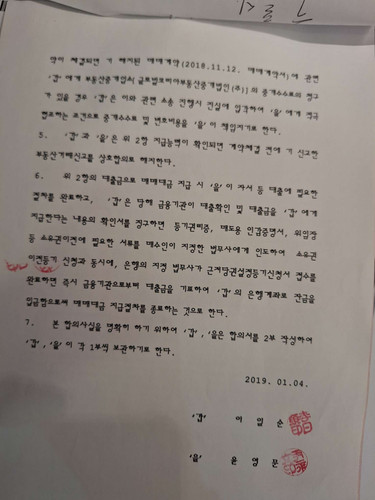 약이 체결되면 기 해지된 매매계약(2018.11.12. 매매계약서)에 관련
'갑'에게 부동산중개업소[글로벌코리아부동산중개법인(주)]의 중개수수료의 청구
가 있을 경우 '갑'은 이와 관련 소송 진행시 진실에 입각하여 '을'에게 적극
협조하는 조건으로 중개수수료 및 변호비용을 '을'이 책임지기로 한다.
5. '갑'과 '을'은 위 2항 지급능력이 확인되면 계약체결 전에 기 신고한
부동산거래신고를 상호합의로 해지한다.
6. 위 2항의 대출금으로 매매대금 지급 시 '을'이 자서 등 대출에 필요한
절차를 완료하고, '갑'은 당해 금융기관이 대출확인 및 대출금을 '갑'에게
지급한다는 내용의 확인서를 징구하면 등기권리증, 매도용 인감증명서, 위임장
등 소유권이전에 필요한 서류를 매수인이 지정한 법무사에게 인도하여 소유권
이전등기 신청과 동시에, 은행의 지정 법무사가 근저당권설정등기신청서 접수를
완료하면 즉시 금융기관으로부터 대출금을 기표하여 '갑'의 은행계좌로 잔금을
입금함으로써 매매대금 지급절차를 종료하는 것으로 한다.
7. 본 합의사실을 명확히 하기 위하여 '갑', '을'은 합의서를 2부 작성하여
'갑', '을'이 각 1부씩 보관하기로 한다.
2019. 01.04.
'갑' 이 일 순
'을' 윤 영 문